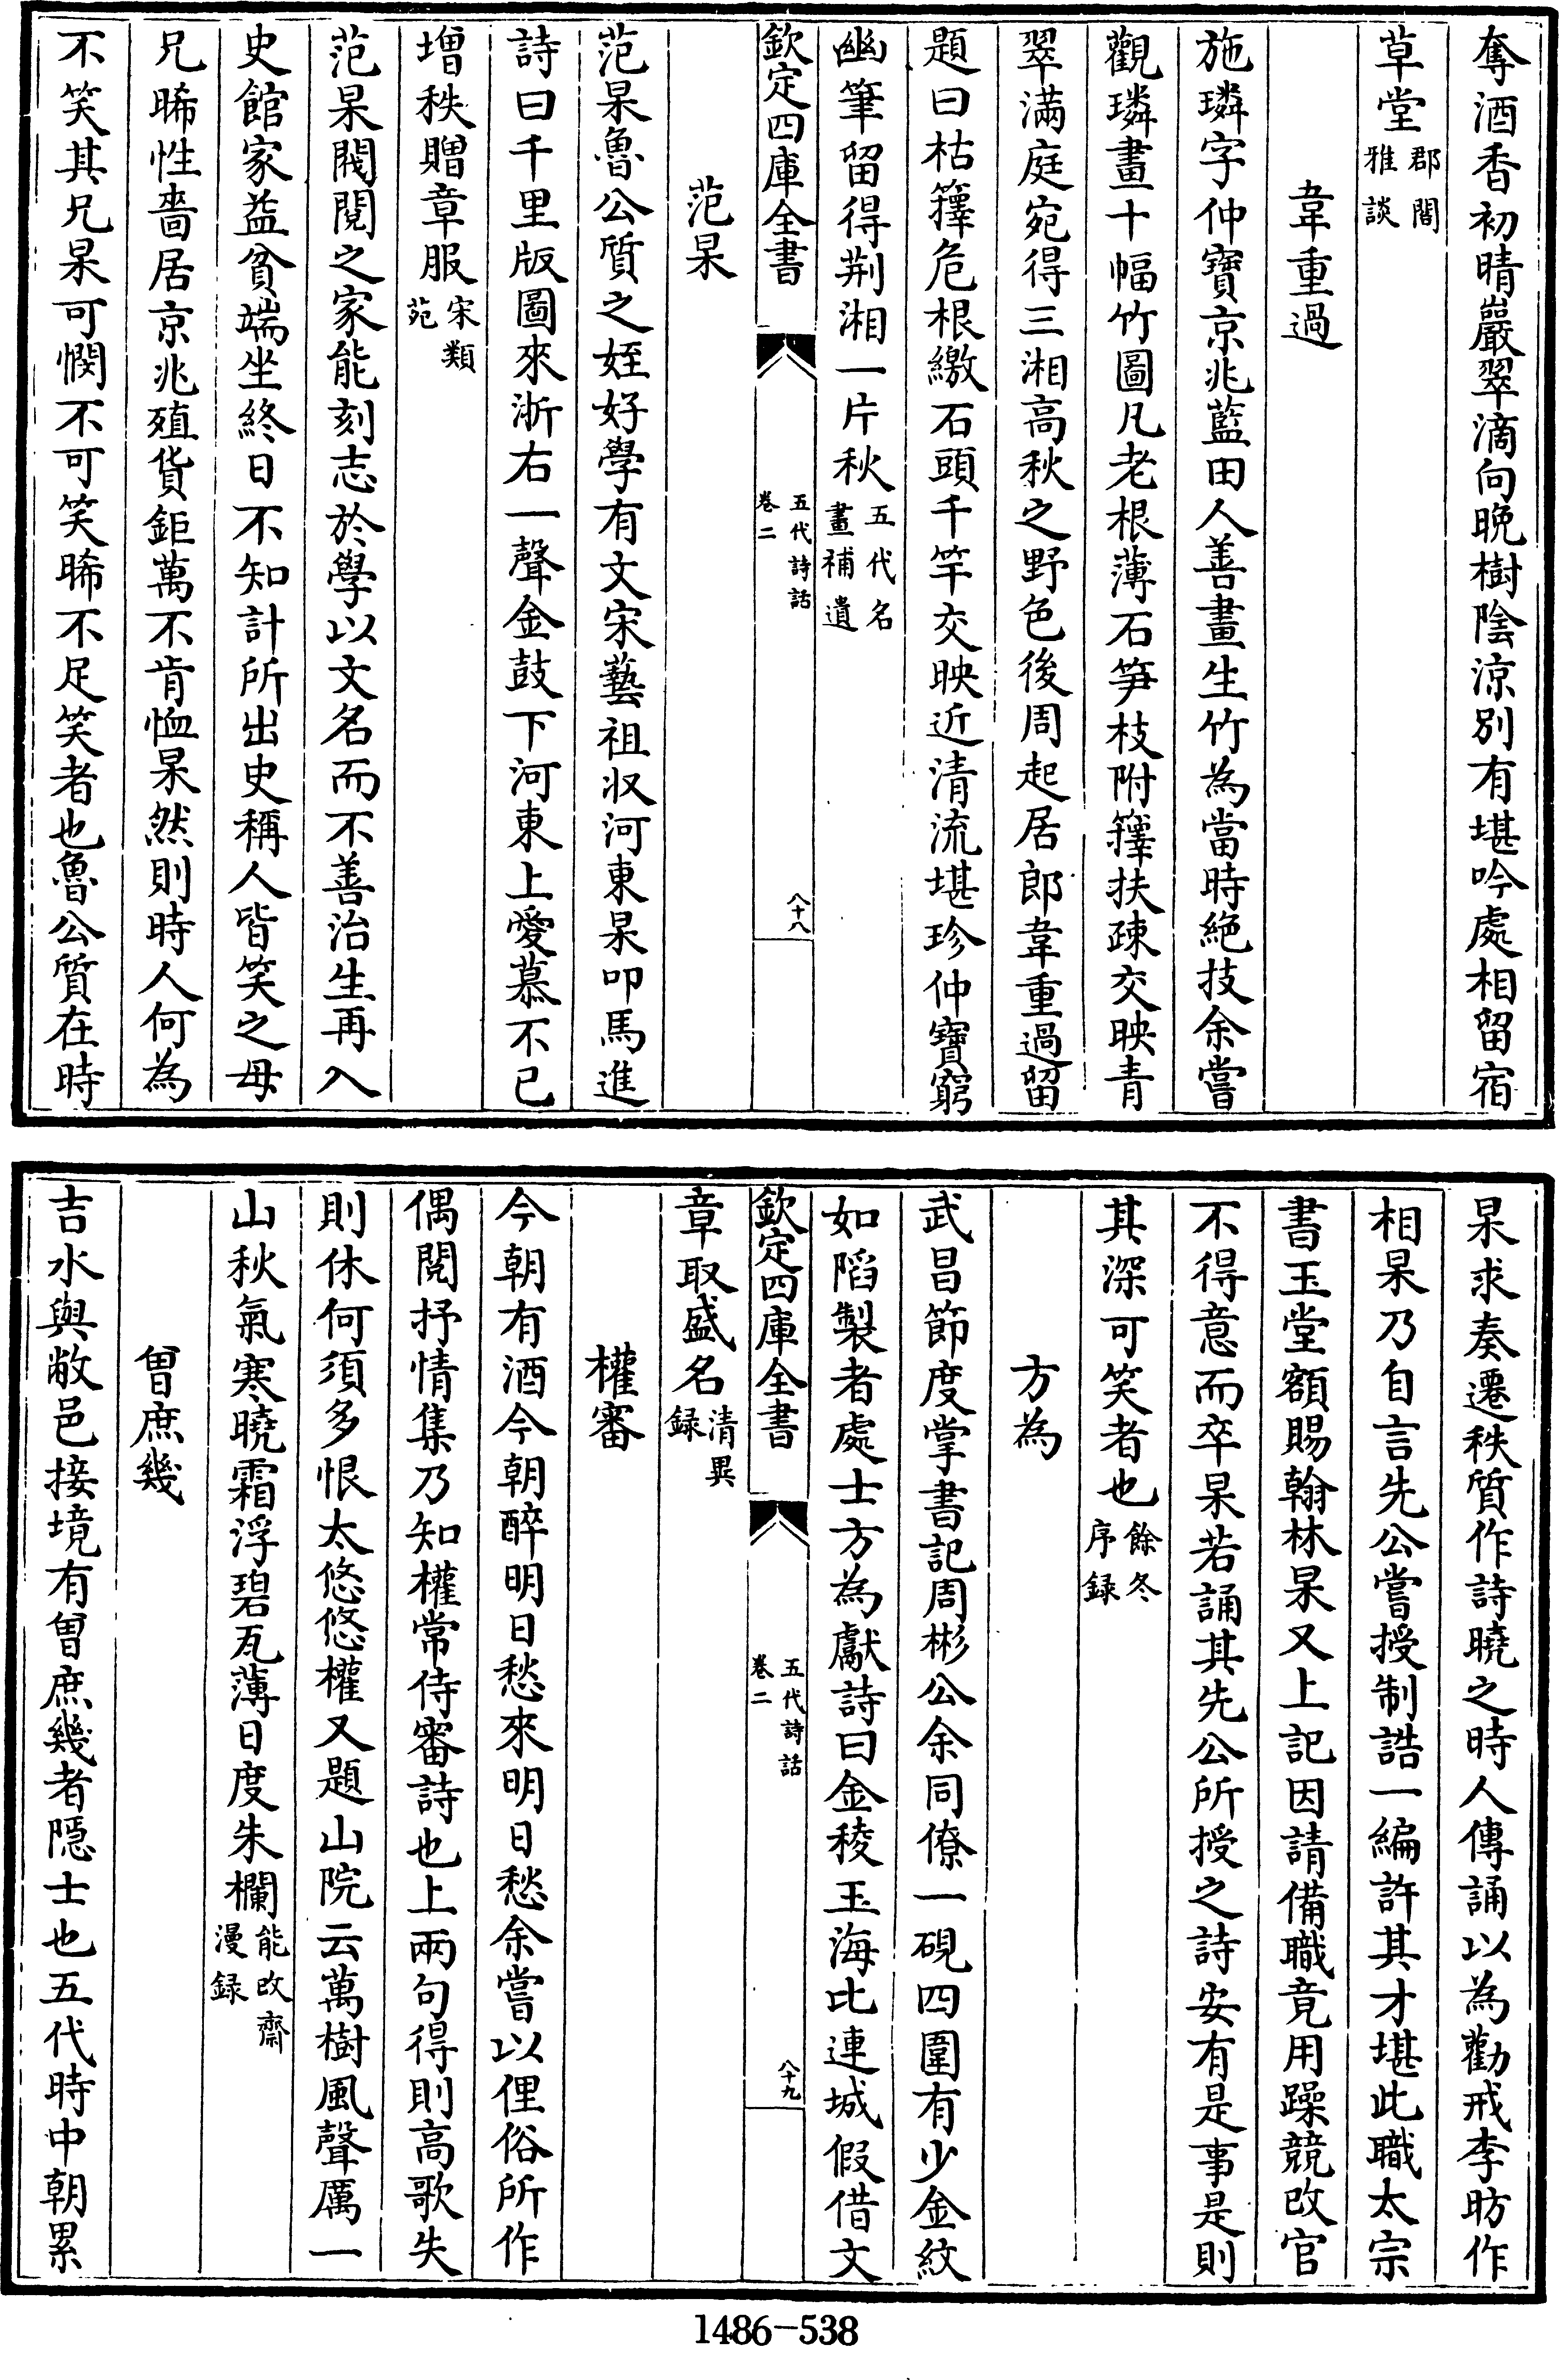 奪酒香初晴巖翠滴向晚樹陰涼别有堪吟處相留宿
草堂郡閣雅談
韋重過
施璘字仲寶京兆藍田人善畫生竹為當時絶技余嘗
觀璘畫十幅竹圖凡老根薄石笋枝附籜扶疎交映青
翠滿庭宛得三湘高秋之野色後周起居郎韋重過留
題曰枯籜危根繳石頭千竿交映近清流堪珍仲寶窮
幽筆留得荆湘一片秋五代名畫補遺
欽定四庫全書
五代詩話
卷二
八十八
范杲
范杲魯公質之姪好學有文宋藝祖収河東杲叩馬進
詩曰千里版圖來浙右一聲金鼓下河東上愛慕不已
增秩贈章服宋類苑
范杲閥閱之家能刻志於學以文名而不善治生再入
史館家益貧端坐終日不知計所出史稱人皆笑之母
兄晞性嗇居京兆殖貨鉅萬不肯恤杲然則時人何為
不笑其兄杲可憫不可笑晞不足笑者也魯公質在時
杲求奏遷秩質作詩曉之時人傳誦以為勸戒李昉作
相杲乃自言先公嘗授制誥一編許其才堪此職太宗
書玉堂額賜翰林杲又上記因請備職竟用躁競改官
不得意而卒杲若誦其先公所授之詩安有是事是則
其深可笑者也餘冬序録
方為
武昌節度掌書記周彬公余同僚一硯四圍有少金紋
如陷製者處士方為獻詩曰金稜玉海比連城假借文
欽定四庫全書
五代詩話
卷二
八十九
章取盛名清異録
權審
今朝有酒今朝醉明日愁來明日愁余嘗以俚俗所作
偶閱抒情集乃知權常侍審詩也上兩句得則高歌失
則休何須多恨太悠悠權又題山院云萬樹風聲厲一
山秋氣寒曉霜浮碧瓦薄日度朱欄能改齋漫録
曾庶幾
吉水與敝邑接境有曾庶幾者隱士也五代時中朝累
1486-538